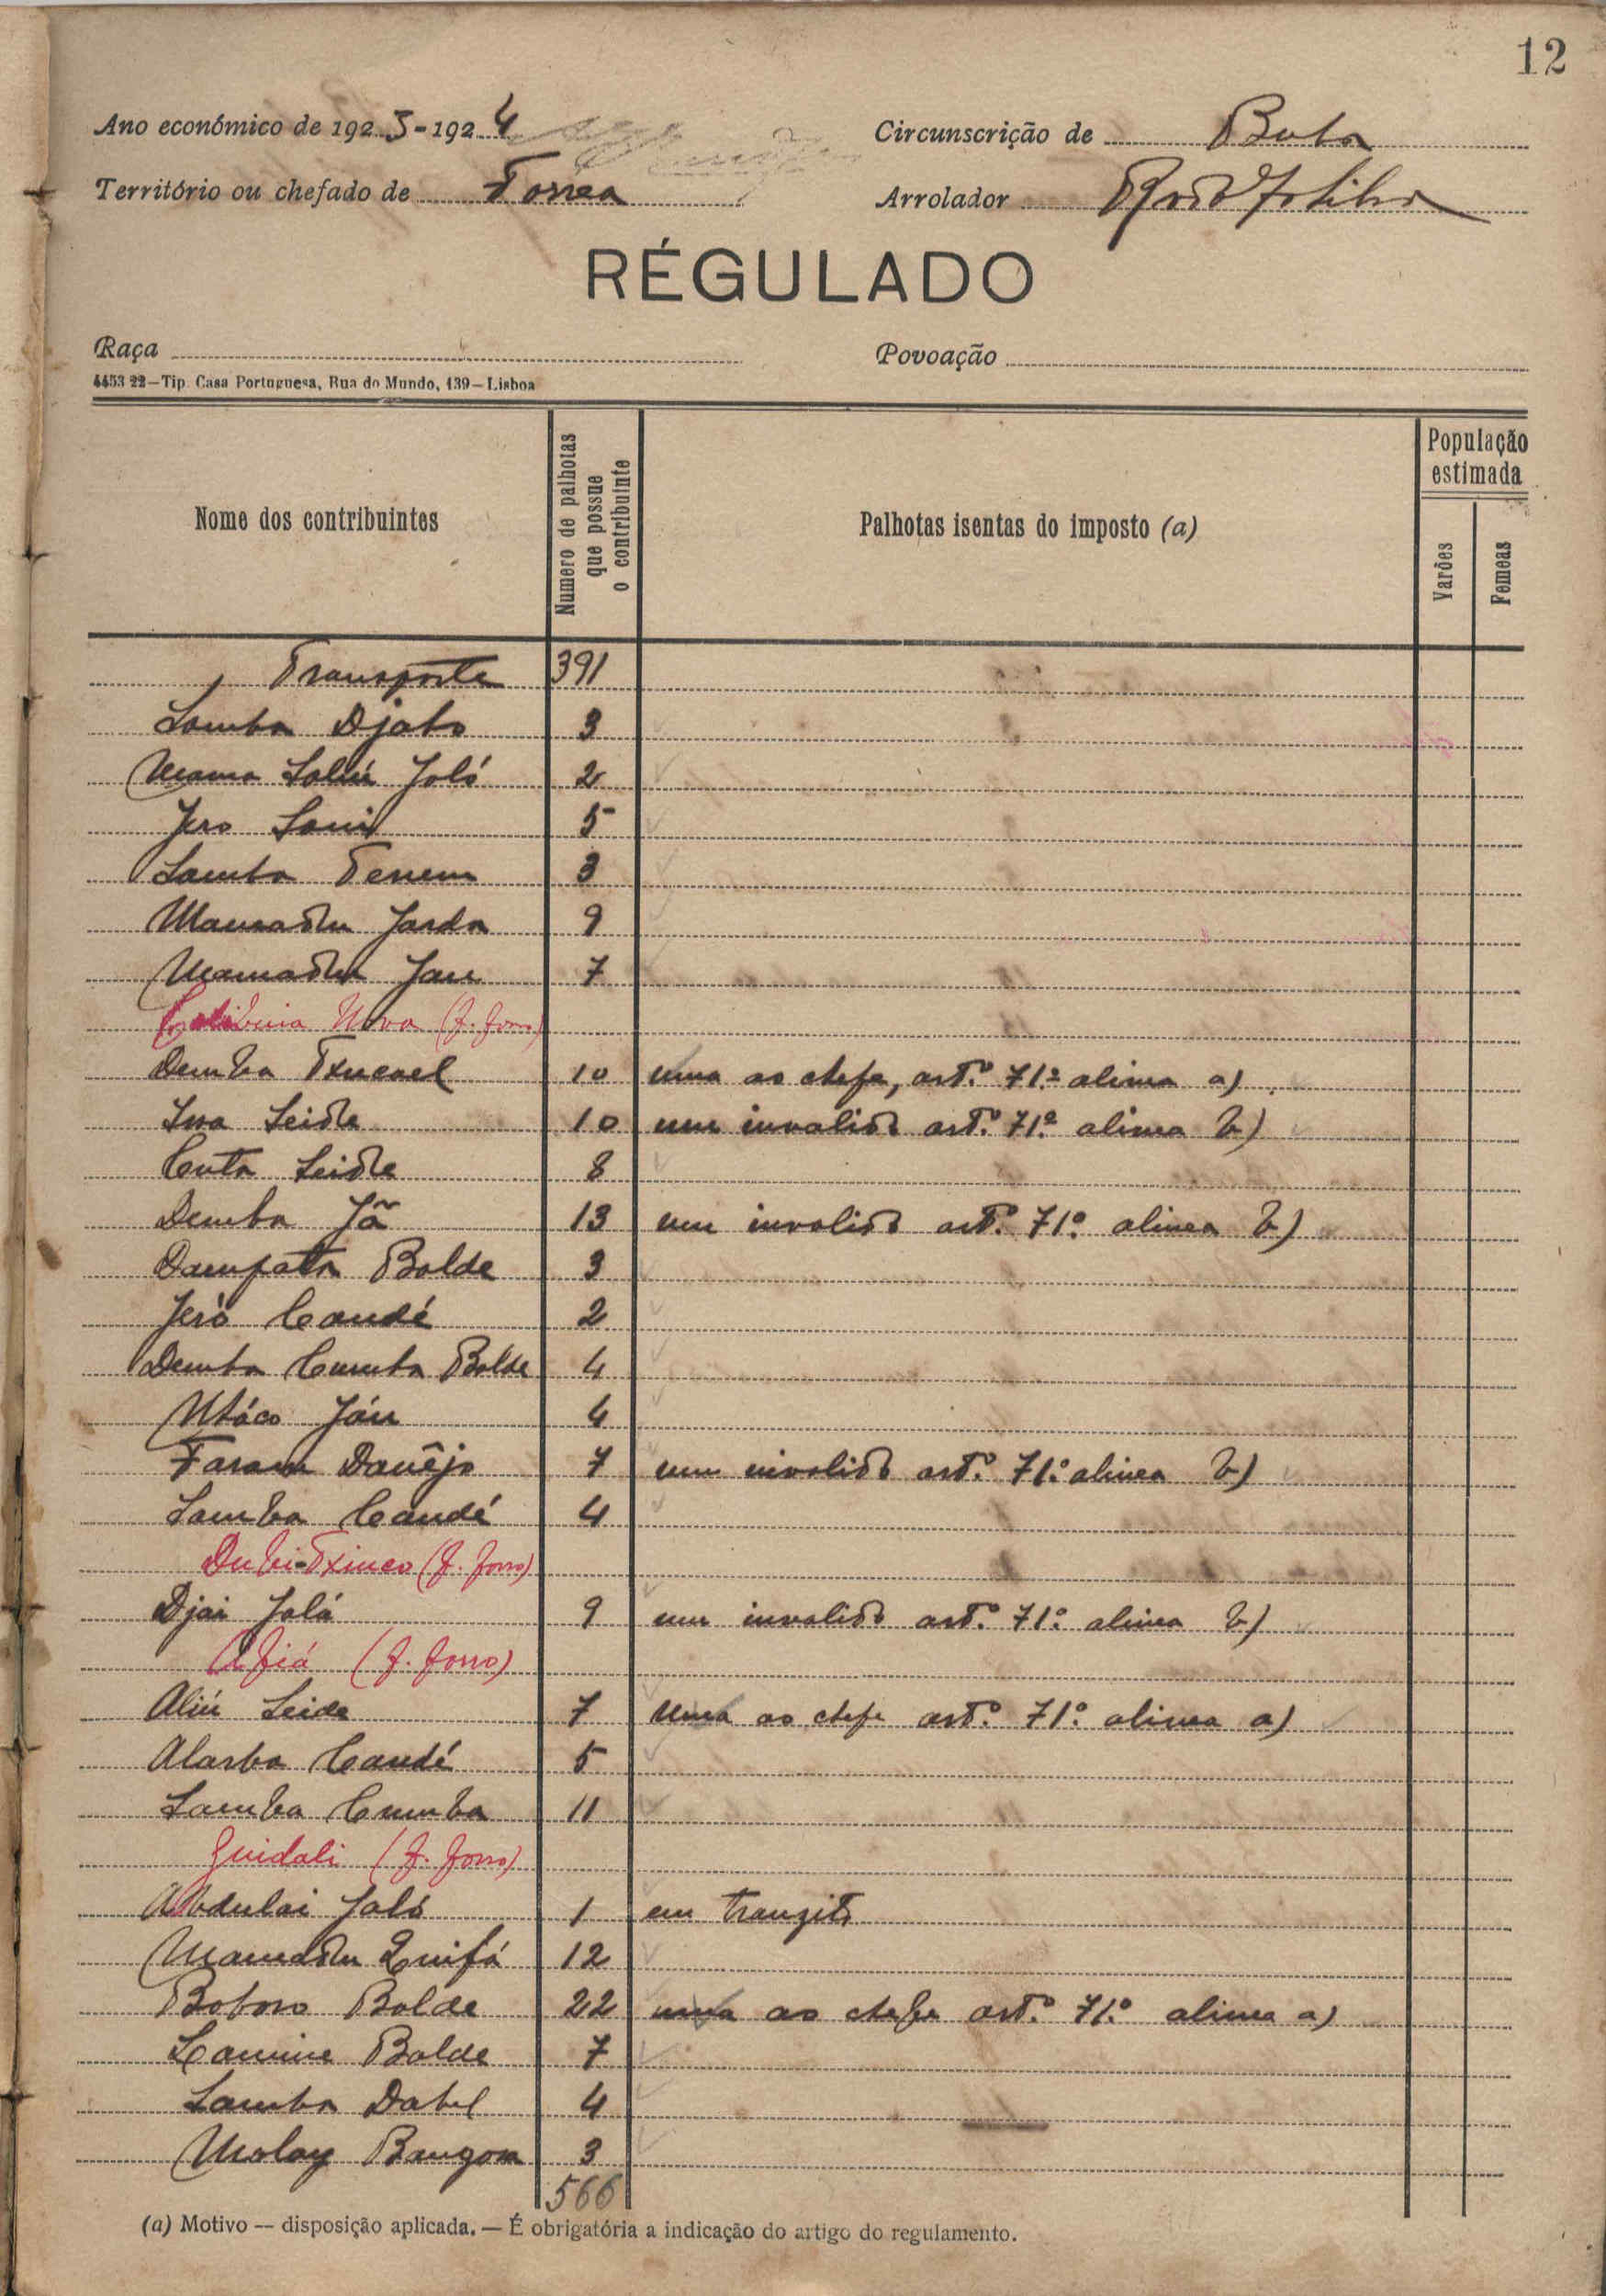 12
Ano económico de 1923-1924
Circunscrição de Buba
Território ou chefado de Forrea
Arrolador
RÉGULADO
Raça
Povoação
4453 22—Tip. Casa Portuguesa, Rua do Mundo, 139—Lisboa
Nome dos contribuintes
Numero de palhotas que possue o contribuinte
Palhotas isentas do imposto (a)
População estimada
Varões
Femeas
Transporte 391
Samba Djabo 3
Mama Saliú Jaló 2
Jero Sani 5
Samba Tenem 3
Mamadu Jarda 9
Mamadu Jau 7
Nova (F. forro)
Demba Txucael 10 uma ao chefe, artº. 71º alinea a)
Iva Seide 10 um invalido artº. 71º. alinea b)
Cuta Seide 8
Demba Jã 13 um invalido artº. 71º. alinea b)
Dampata Balde 3
Jeró Candé 2
Demba Cumba Balde 4
Utáco Jáu 4
Faram Danêjo 7 um invalido artº. 71º. alinea b)
Samba Candé 4
Dubi-Txinco (F. forro)
Djai Jalá 9 um invalido artº. 71º. alinea b)
Afiá (F. forro)
Aliú Seide 7 uma ao chefe artº. 71º. alinea a)
Alarba Candé 5
Samba Cumba 11
Guidali (F. forro)
Abdulai Jaló 1 em tranzito
Mamadu Quifá 12
Boboro Balde 22 uma ao chefe artº. 71º. alinea a)
Lamine Balde 7
Samba Dabel 4
Molay Bangora 3
566
(a) Motivo — disposição aplicada. — É obrigatória a indicação do artigo do regulamento.